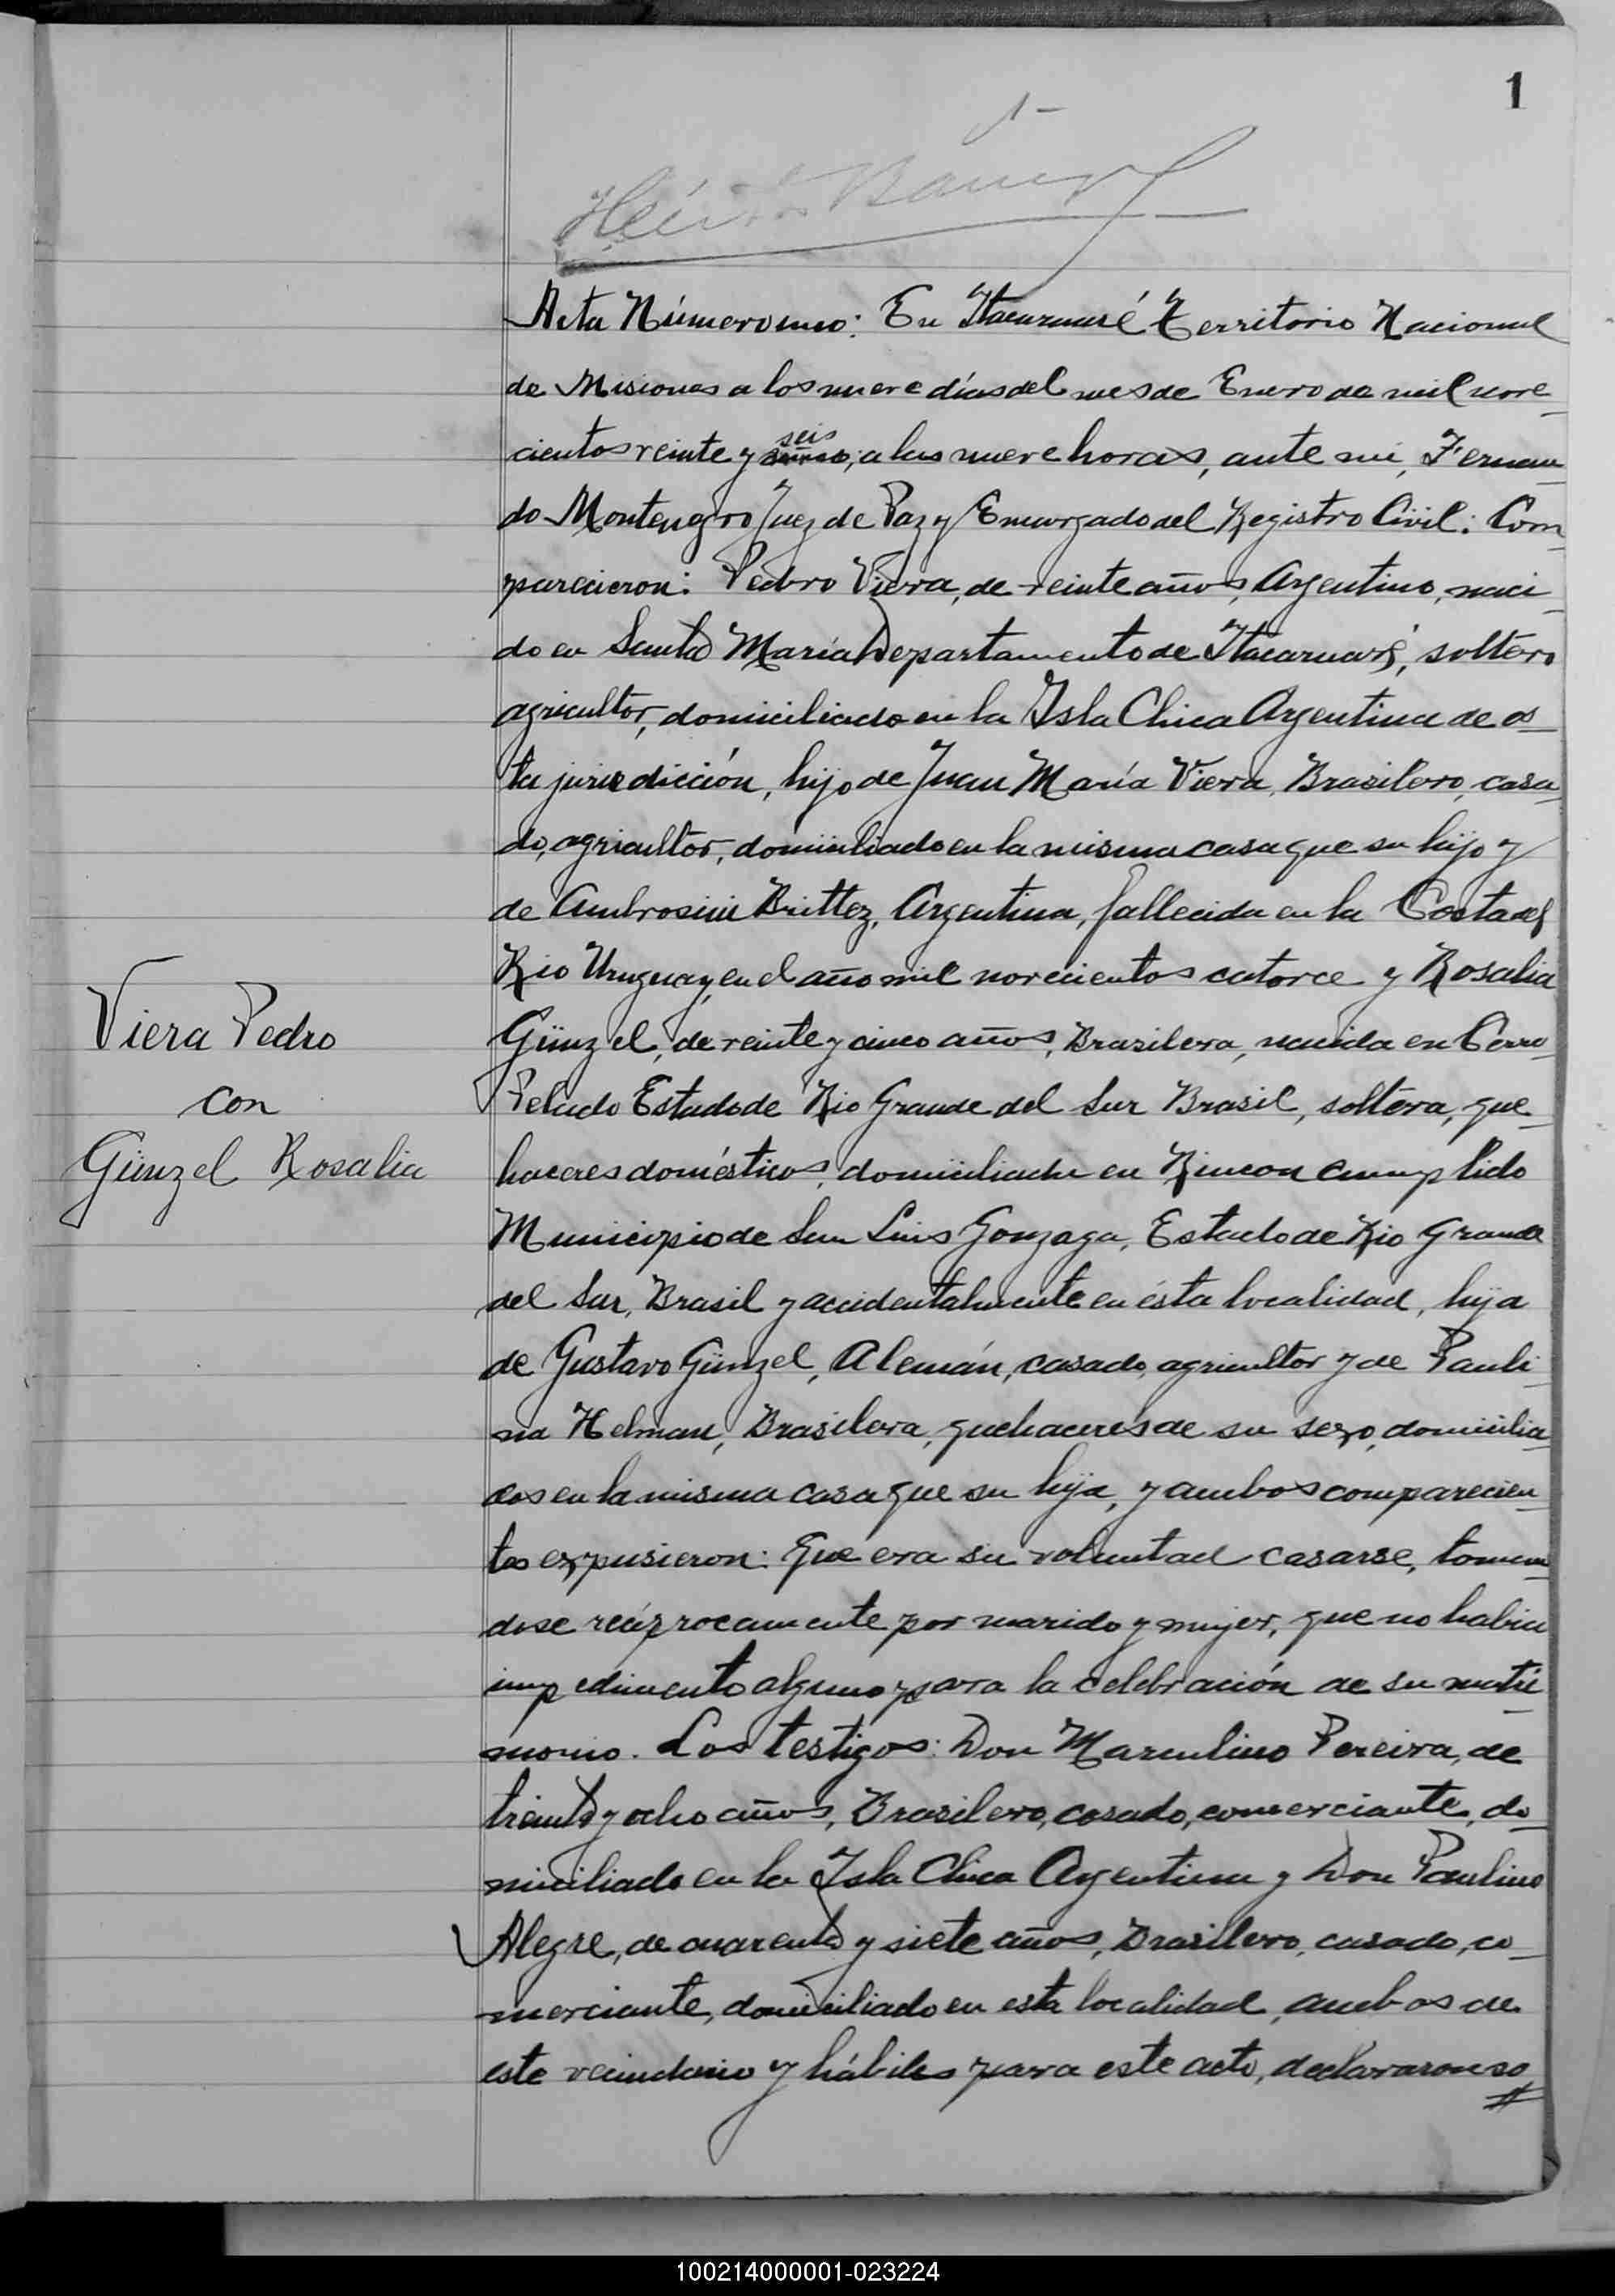 1
Acta Número uno: En Itacaruaré Territorio Nacional
de Misiones a los nueve días del mes de Enero de mil nove
cientos veinte y seis; a las nueve horas, ante mi, Fernan
do Montenegro Juez de Paz y Encargado del Registro Civil: Com
parecieron: Pedro Viera, de veinte años, Argentino, naci
do en Santa María Departamento de Itacaruaré, soltero
agricultor, domiciliado en la Isla Chica Argentina de es
ta jurisdicción, hijo de Juan María Viera, Brasilero, casa
do, agricultor, domiciliado en la misma casa que su hijo y
de Ambrosini Brittez, Argentina, fallecida en la Costa del
Rio Uruguay, en el año mil novecientos catorce y Rosalia
Günzel, de veinte y cinco años, Brasilera, nacida en Cerro
Pelado Estado de Rio Grande del Sur Brasil, soltera, que
haceres domésticos, domiciliada en Rincon cumplido
Municipio de San Luis Gonzaga, Estado de Rio Grande
del Sur, Brasil y accidentalmente en ésta localidad, hija
de Gustavo Günzel, Alemán, casado, agricultor y de Pauli
na Helman, Brasilera, quehaceres de su sexo, domicilia
dos en la misma casa que su hija, y ambos comparecien
tes expusieron: Que era su voluntad casarse, toman
dose recíprocamente por marido y mujer, que no habia
impedimento alguno para la celebración de su matri
monio. Los testigos: Don Marculino Pereira, de
treinta y ocho años, Brasilero, casado, comerciante, do
miciliado en la Isla Chica Argentina y Don Paulino
Alegre, de cuarenta y siete años, Brasilero, casado, co
merciante, domiciliado en esta localidad, ambos de
este vecindario y hábiles para este acto, declararon so
//
Viera Pedro
con
Günzel Rosalia
100214000001-023224